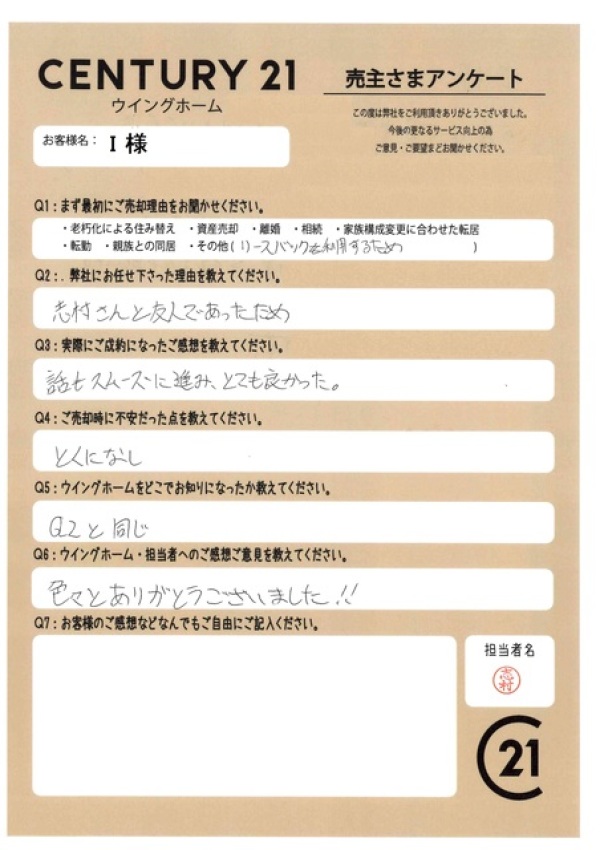 CENTURY 21
ウイングホーム
売主さまアンケート
この度は弊社をご利用頂きありがとうございました。
今後の更なるサービス向上の為
ご意見・ご要望までお聞かせください。
お客様名： I 様
Q1：まず最初にご売却理由をお聞かせください。
・老朽化による住み替え ・資産売却 ・離婚 ・相続 ・家族構成変更に合わせた転居
・転勤 ・親族との同居 ・その他(リースバックを利用するため )
Q2：．弊社にお任せ下さった理由を教えてください。
志村さんと友人であったため
Q3：実際にご成約になったご感想を教えてください。
話もスムーズに進み、とても良かった。
Q4：ご売却時に不安だった点を教えてください。
とくになし
Q5：ウイングホームをどこでお知りになったか教えてください。
Q2と同じ
Q6：ウイングホーム・担当者へのご感想ご意見を教えてください。
色々とありがとうございました!!
Q7：お客様のご感想などなんでもご自由にご記入ください。
担当者名
志村
C21